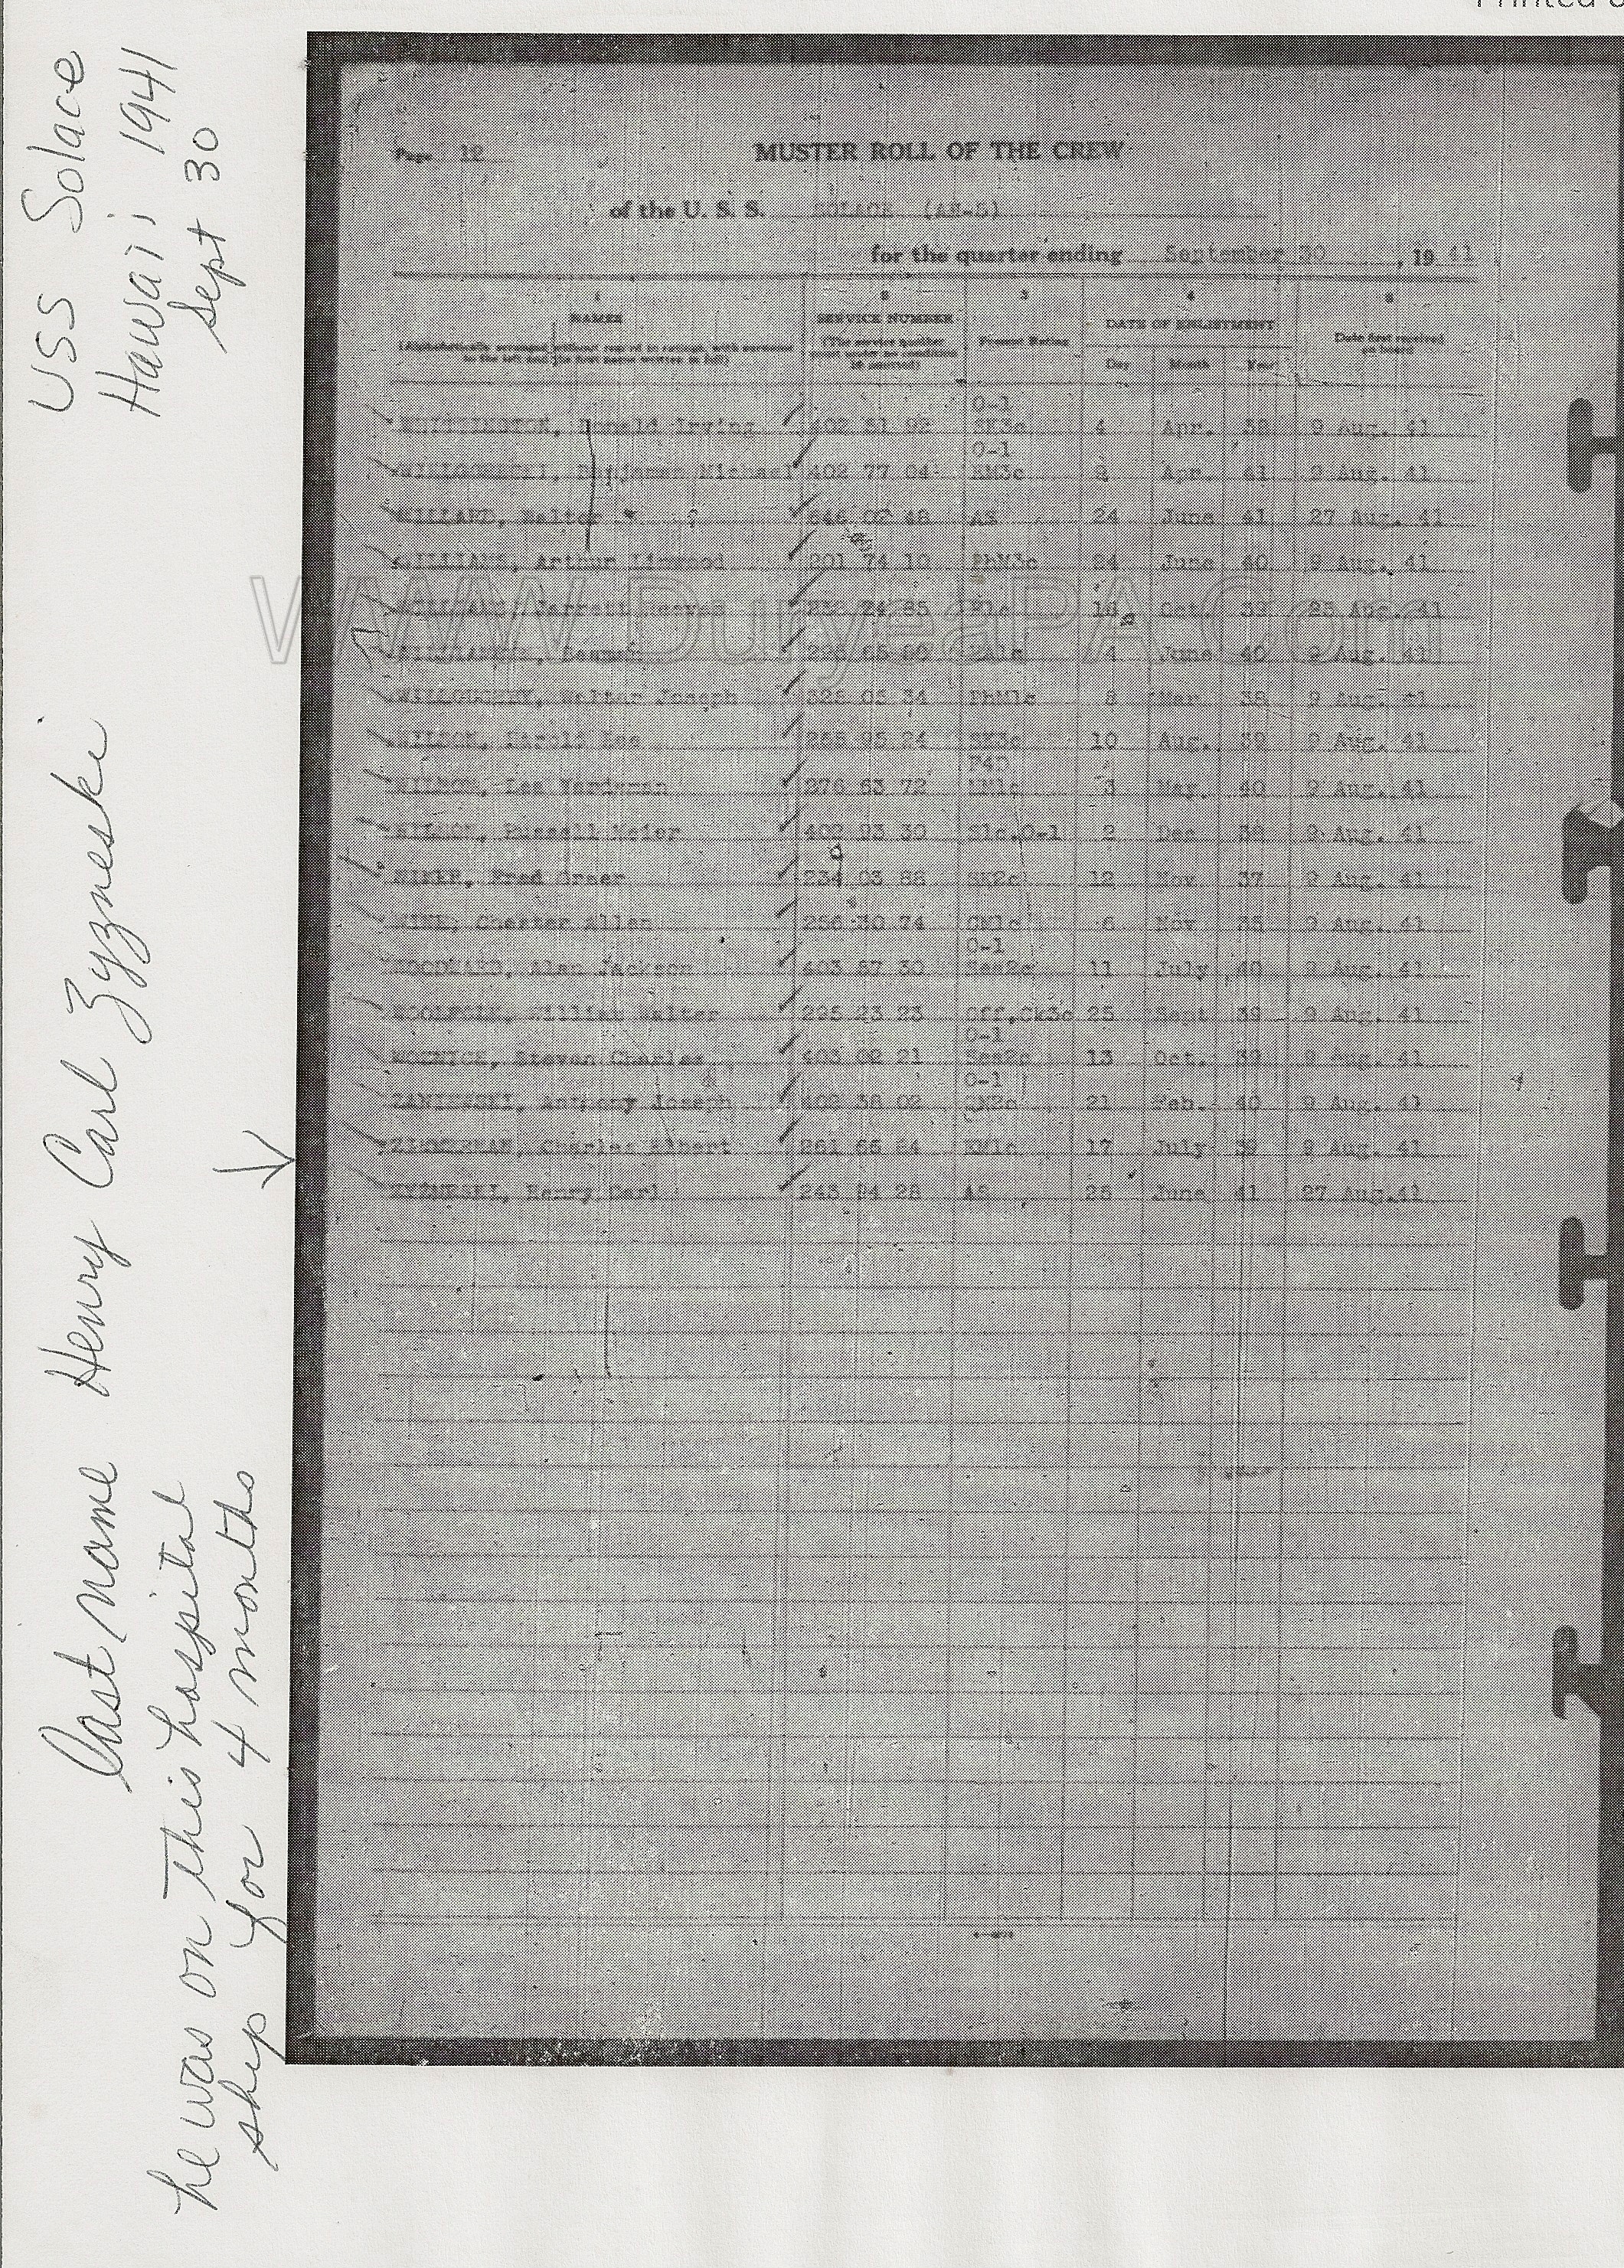 Printed
USS Solace
Hawaii 1941
Sept 30
last name Henry Carl Zyzneski
he was on this hospital
ship for 4 months
Page 12
MUSTER ROLL OF THE CREW
of the U. S. S. SOLACE (AH-5)
for the quarter ending September 30, 19 41
1 2 3 4 5
NAMES SERVICE NUMBER Present Rating DATE OF ENLISTMENT Date first received on board
(Alphabetically arranged without regard to ratings, with surname to the left and the first name written in full) (The service number must under no condition be omitted) Day Month Year
O-1
Donald Irving 402 81 92 SK3c 4 Apr. 38 9 Aug. 41
O-1
Benjamen Michael 402 77 04 9 Apr. 41 9 Aug. 41
WILLART, Walter 646 02 48 AS 24 June 41 27 Aug. 41
WILLIAMS, Arthur Linwood 201 74 10 PhM3c 24 June 40 9 Aug. 41
WILLIAMS, Jarrett Reeves Oct. 39 25 Aug. 41
4 June 40 9 Aug. 41
WILLOUGHBY, Walter Joseph 328 05 34 PhM1c 8 Mar 38 9 Aug. 41
WILSON, Harold 268 95 24 SK3c 10 Aug. 39 9 Aug. 41
F4D
WILSON, Lee 376 63 72 3 May. 40 9 Aug. 41
WILSON, Russell Meier 402 93 30 O-1 2 Dec 38 9 Aug. 41
Fred Greer 234 03 88 SK2c 12 Nov 37 9 Aug. 41
WINE, Chester Allen 256 30 74 6 Nov 35 9 Aug. 41
O-1
WOODWARD, Alan Jackson 403 87 30 Sea2c 11 July 40 9 Aug. 41
WOOLFOLK, William Walter 295 23 23 Off.Ck3c 25 Sept 39 9 Aug. 41
O-1
Steven Charles 403 02 21 Sea2c 13 Oct. 39 9 Aug. 41
O-1
Anthony Joseph 402 38 02 21 Feb. 40 9 Aug. 41
ZIMMERMAN, Charles Elbert 261 65 64 17 July 39 9 Aug. 41
ZYZNESKI, Henry Carl 243 94 28 AS 25 June 41 27 Aug.41
www.DuryeaPA.Com